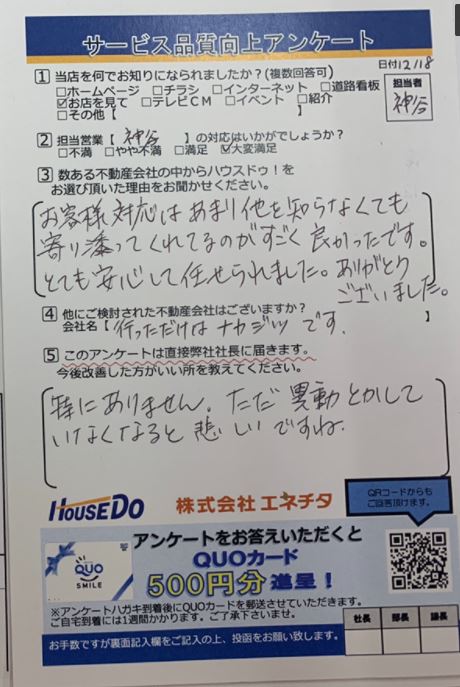 サービス品質向上アンケート
日付12/18
1 当店を何でお知りになられましたか?(複数回答可)
□ホームページ □チラシ □インターネット □道路看板
☑お店を見て □テレビCM □イベント □紹介
□その他【 】
担当者
神谷
2 担当営業【 神谷 】の対応はいかがでしょうか?
□不満 □やや不満 □満足 ☑大変満足
3 数ある不動産会社の中からハウスドゥ!を
お選び頂いた理由をお聞かせください。
お客様対応はあまり他を知らなくても
寄り添ってくれてるのがすごく良かったです。
とても安心して任せられました。ありがとう
ございました。
4 他にご検討された不動産会社はございますか?
会社名【 行っただけはナカジツです。 】
5 このアンケートは直接弊社社長に届きます。
今後改善した方がいい所を教えてください。
特にありません。ただ異動とかして
いなくなると悲しいですね。
HOUSEDO 株式会社 エネチタ
QRコードからも
ご回答頂けます。
アンケートをお答えいただくと
QUOカード
500円分 進呈!
QUO
SMILE
※アンケートハガキ到着後にQUOカードを郵送させていただきます。
ご自宅到着には1週間かかります。ご了承下さいませ。
社長 部長 課長
お手数ですが裏面記入欄をご記入の上、投函をお願い致します。